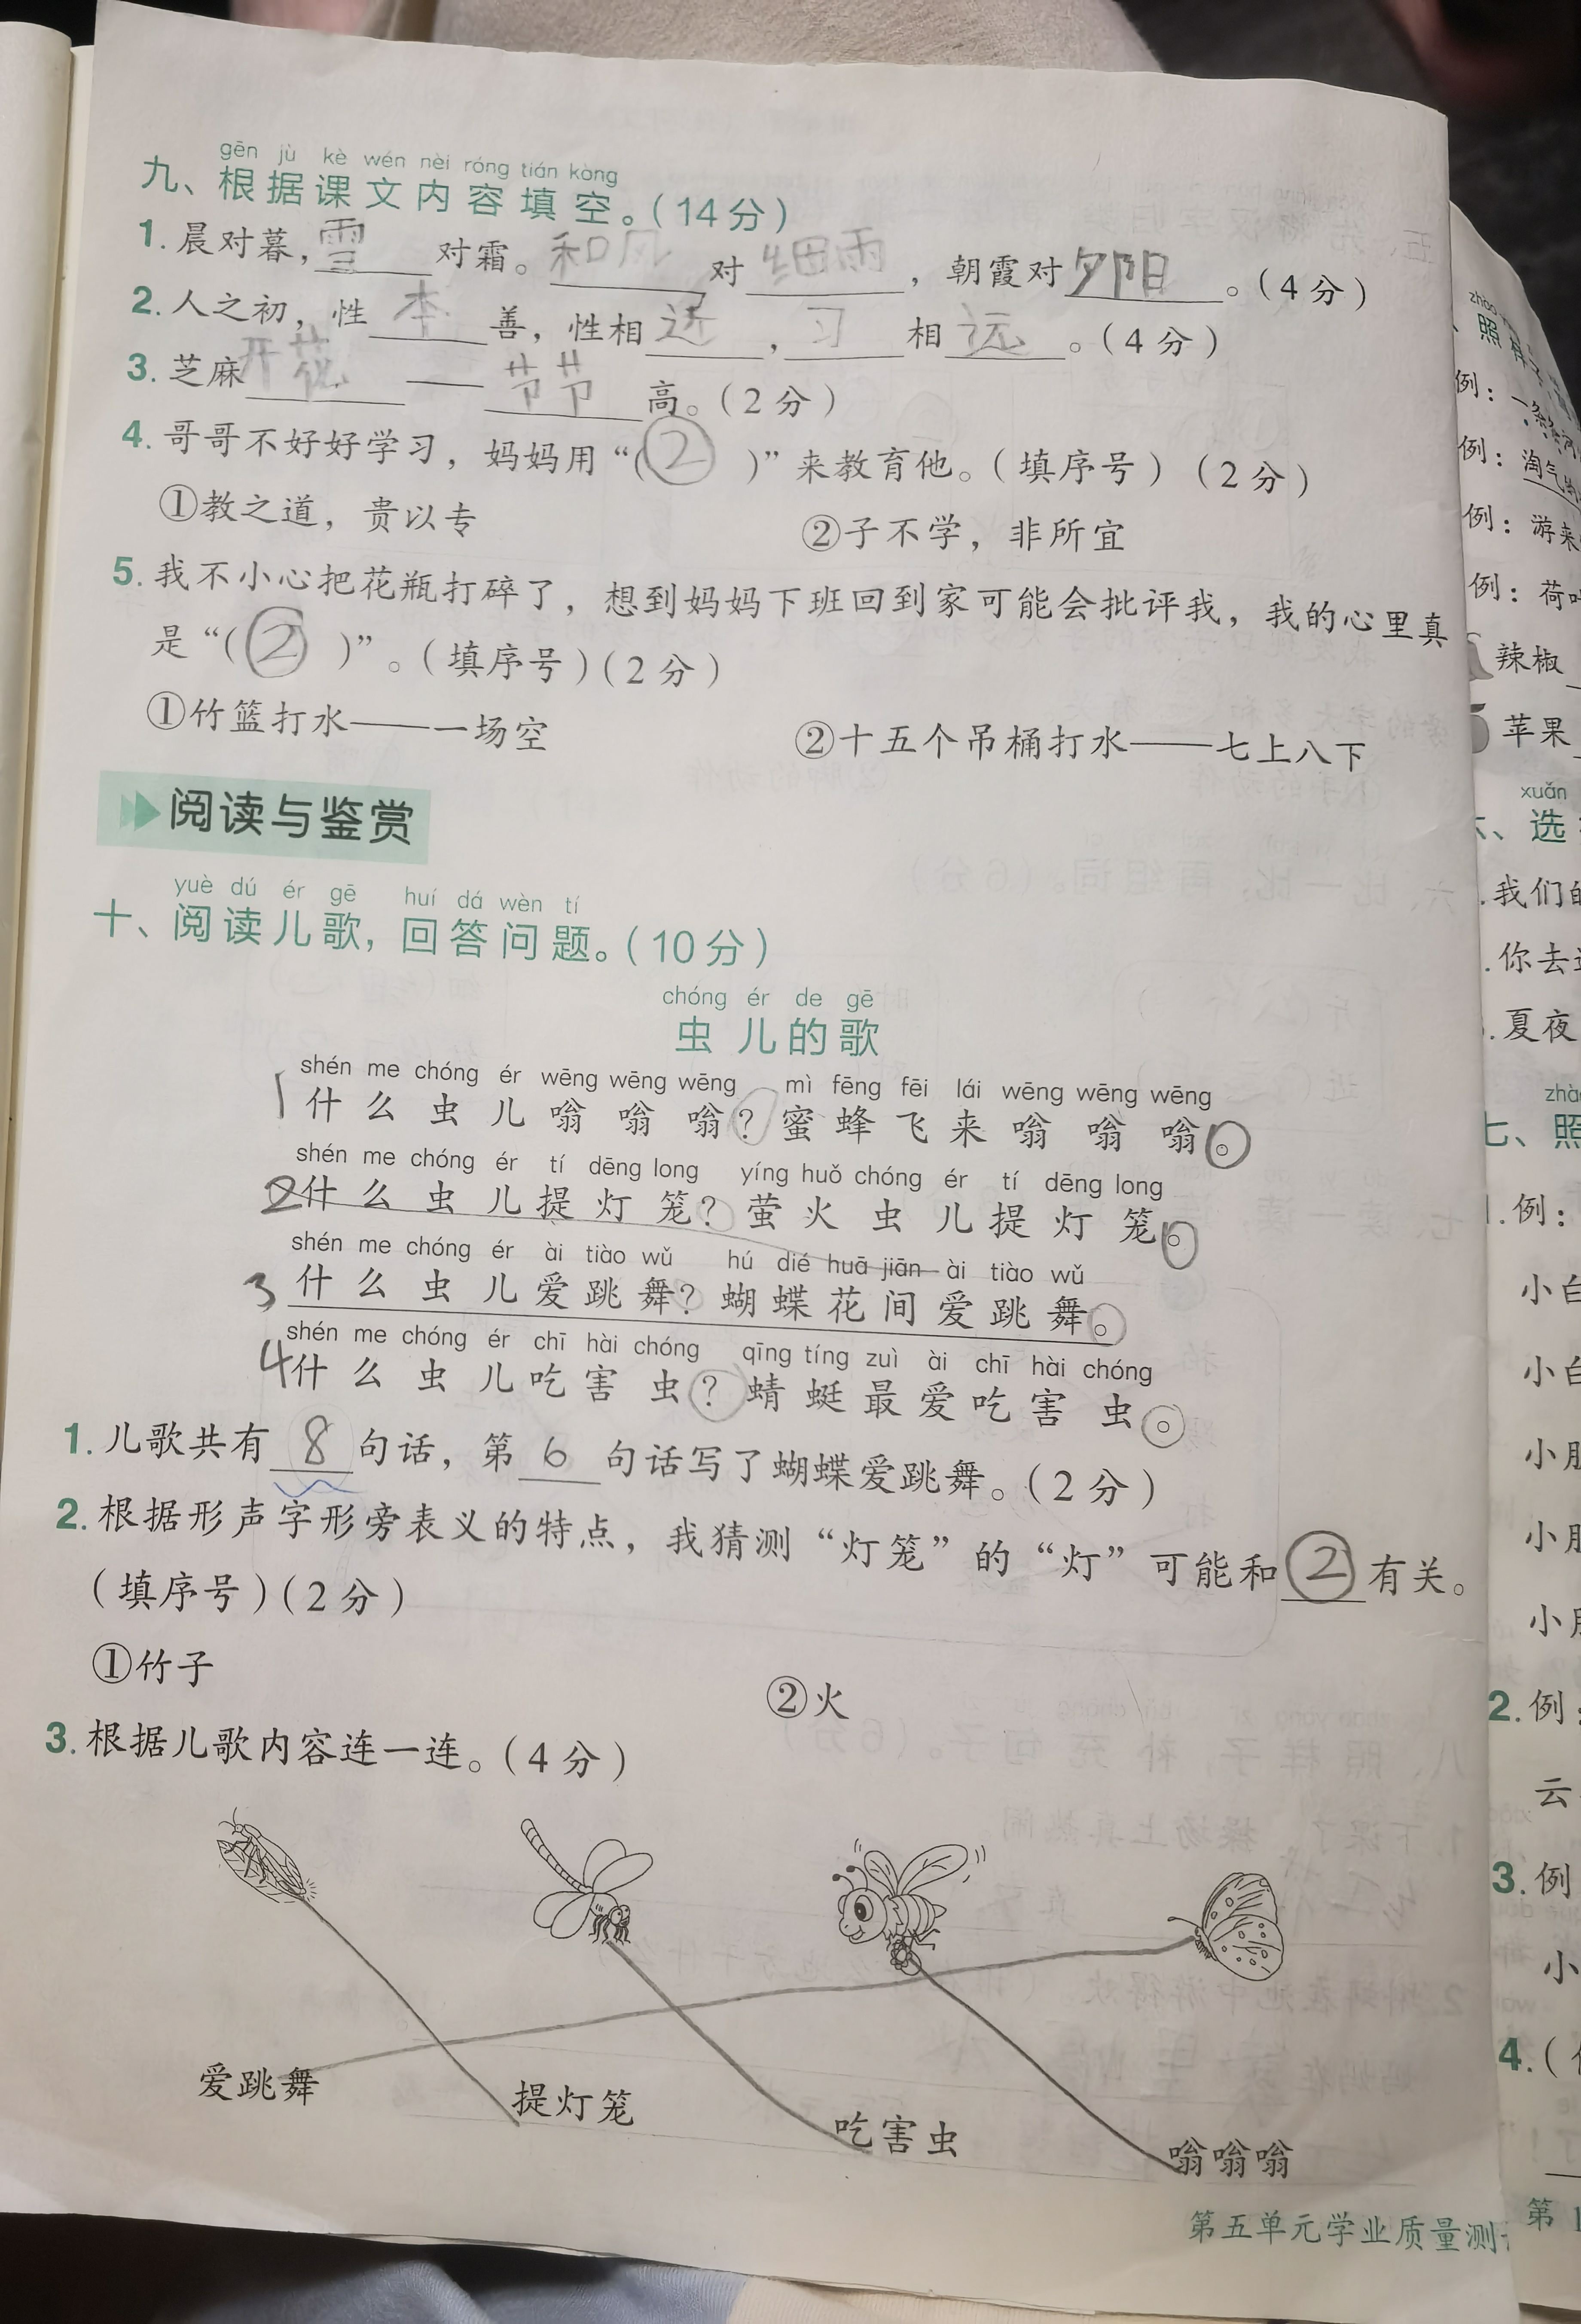 gēn jù kè wén nèi róng tián kòng
九、根据课文内容填空。(14分)
1. 晨对暮,雪对霜。和风对细雨,朝霞对夕阳。(4分)
2. 人之初,性本善,性相近,习相远。(4分)
3. 芝麻开花——节节高。(2分)
4. 哥哥不好好学习,妈妈用“(②)”来教育他。(填序号)(2分)
①教之道,贵以专 ②子不学,非所宜
5. 我不小心把花瓶打碎了,想到妈妈下班回到家可能会批评我,我的心里真
是“(②)”。(填序号)(2分)
①竹篮打水——一场空 ②十五个吊桶打水——七上八下
阅读与鉴赏
yuè dú ér gē huí dá wèn tí
十、阅读儿歌,回答问题。(10分)
chóng ér de gē
虫儿的歌
shén me chóng ér wēng wēng wēng mì fēng fēi lái wēng wēng wēng
1 什么虫儿嗡嗡嗡?蜜蜂飞来嗡嗡嗡。
shén me chóng ér tí dēng long yíng huǒ chóng ér tí dēng long
2 什么虫儿提灯笼?萤火虫儿提灯笼。
shén me chóng ér ài tiào wǔ hú dié huā jiān ài tiào wǔ
3 什么虫儿爱跳舞?蝴蝶花间爱跳舞。
shén me chóng ér chī hài chóng qīng tíng zuì ài chī hài chóng
4 什么虫儿吃害虫?蜻蜓最爱吃害虫。
1. 儿歌共有8句话,第6句话写了蝴蝶爱跳舞。(2分)
2. 根据形声字形旁表义的特点,我猜测“灯笼”的“灯”可能和②有关。
(填序号)(2分)
①竹子 ②火
3. 根据儿歌内容连一连。(4分)
爱跳舞 提灯笼 吃害虫 嗡嗡嗡
第五单元学业质量测
zhào
照
例:一条条
例:淘气
例:游来
例:荷
辣椒
苹果
xuǎn
、选
我们的
你去
夏夜
zhào
七、照
1. 例:
小白
小白
小
小
小
2. 例:
云
3. 例
小
4. (
第1